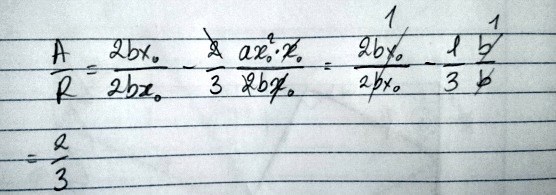 A/R = 2bx₀/2bx₀ - 2/3 ax₀²·x₀/2bx₀ = 2bx₀/2bx₀ 1 - 1/3 b/b 1
= 2/3